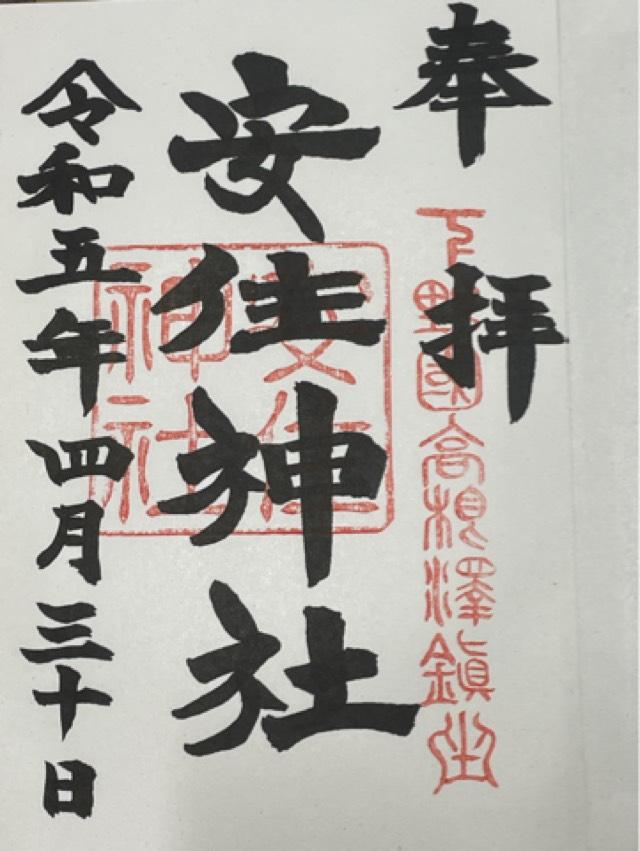 奉拝
下野國高根澤鎮坐
安住神社
安住神社
令和五年四月三十日